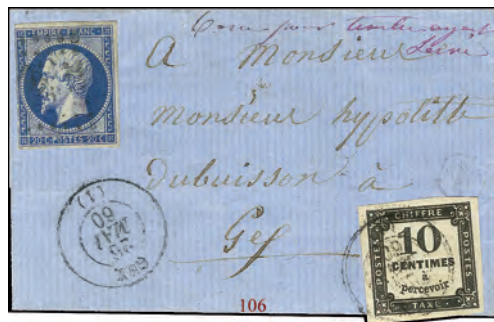 EMPIRE FRANC
20 C · POSTES · 20 C
A Monsieur
Monsieur hypolitte
dubuisson à
Gex
GEX
26
MAI
60
(1)
CHIFFRE
POSTES
10
CENTIMES
à
percevoir
POSTES
TAXE
106